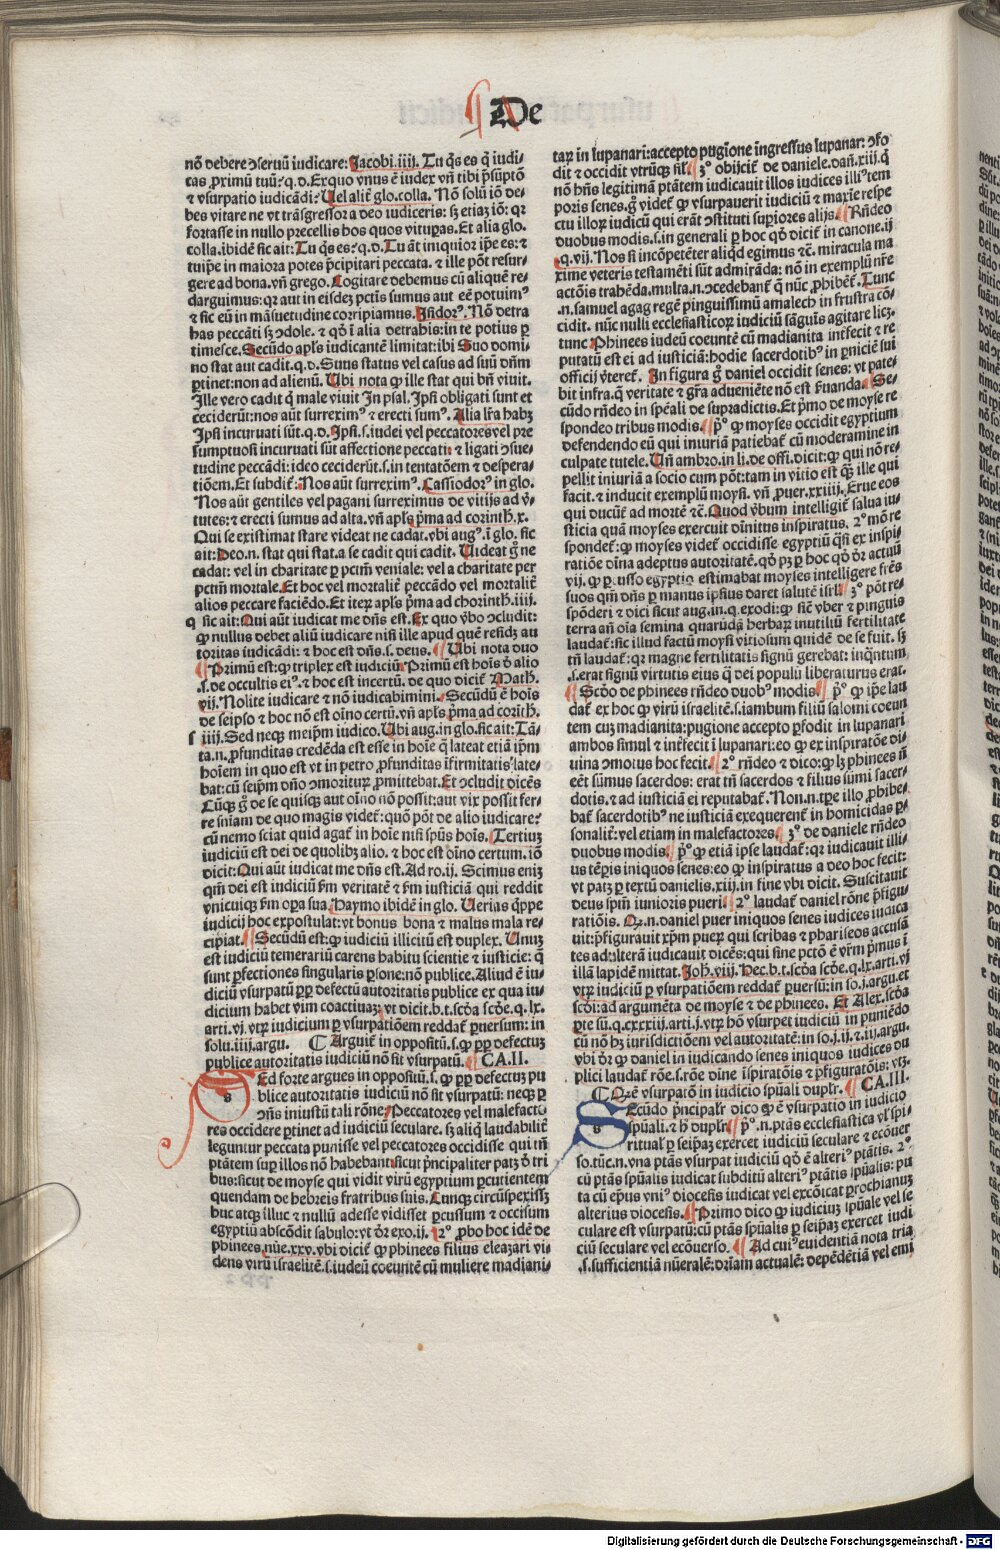 De
nõ debere ↄseruũ iudicare: Jacobi.iiij. Tu q̃s es q̃ iudi⸗
cas ꝓximũ tuũ? q.d. Ex quo vnus ẽ iudex vñ tibi p̃sũptõ
⁊ vsurpatio iudicãdi? Uel alit̃ glo.colla. Nõ solũ iõ de⸗
bes vitare ne vt trãsgressor a deo iudiceris: sꝫ etiaꝫ iõ: qꝛ
fortasse in nullo precellis hos quos vituꝑas. Et alia glo.
colla.ibidẽ sic ait: Tu q̃s es? q.d. Tu ãt iniquior ip̃e es: ⁊
tu ip̃e in maiora potes p̃cipitari peccata. ⁊ ille põt resur⸗
gere ad bona. vñ grego. Cogitare debemus cũ aliquẽ re⸗
darguimus: qꝛ aut in eisdeꝫ pctĩs sumus aut eẽ potuimꝰ
⁊ sic eũ in mãsuetudine corripiamus. Jsidorꝰ. Nõ detra
has peccãti sꝫ ↄdole. ⁊ qõ ĩ alia detrahis: in te potius p
timesce. Secũdo apl̃s iudicantẽ limitat: ibi Suo domi⸗
no stat aut cadit. q.d. Suus status vel casus ad suũ dñm
ꝑtinet: non ad alienũ. Ubi nota ꝙ ille stat qui bñ viuit.
Jlle vero cadit q̃ male viuit Jn psal. Jpsi obligati sunt et
ceciderũt: nos aũt surreximꝰ ⁊ erecti sumꝰ. Alia lr̃a habꝫ
Jpsi incuruati sũt. q.d. Jpsi.s.iudei vel peccatores vel pre
sumptuosi incuruati sũt affectione peccati: ⁊ ligati ↄsue⸗
tudine peccãdi: ideo ceciderũt.s.in tentatõem ⁊ despera⸗
tiõem. Et subdit̃: Nos aũt surreximꝰ. Cassiodorꝰ in glo.
Nos aũt gentiles vel pagani surreximus de vitijs ad v̾⸗
tutes: ⁊ erecti sumus ad alta. vñ apl̃s p̃ma ad corinth.x.
Qui se existimat stare videat ne cadat. vbi augꝰ. ĩ glo. sic
ait: Deo.n. stat qui stat. a se cadit qui cadit. Uideat g̊ ne
cadat: vel in charitate ꝑ pctm̃ veniale: vel a charitate per
pctm̃ mortale. Et hoc vel mortalit̃ peccãdo vel mortalit̃
alios peccare faciẽdo. Et iteꝝ apl̃s p̃ma ad chorinth.iiij.
q sic ait: Qui aũt iudicat me dñs est. Ex quo v̾bo ↄcludit:
ꝙ nullus debet aliũ iudicare nisi ille apud quẽ residꝫ au
toritas iudicãdi: ⁊ hoc est dñs.s. deus. ¶ Ubi nota duo
¶ Primũ est: ꝙ triplex est iudiciũ. Primũ est hoĩs ð alio
.s.de occultis eiꝰ. ⁊ hoc est incertũ. de quo dicit̃ Math.
vij. Nolite iudicare ⁊ nõ iudicabimini. Secũdũ ẽ hoĩs
de seipso ⁊ hoc nõ est oĩno certũ. vñ apl̃s p̃ma ad corĩth.
s iiij. Sed neqꝫ meip̃m iudico. Ubi aug.in glo.sic ait: Tã⸗
ta.n.ꝓfunditas credẽda est esse in hoĩe q̃ lateat etiã ip̃m
hoĩem in quo est vt in petro ꝓfunditas ĩfirmitatis late⸗
bat: cũ seip̃m dño ↄmoriturꝫ ꝓmittebat. Et ↄcludit dicẽs
Cũqꝫ g̊ de se quisqꝫ aut oĩno nõ possit: aut vix possit fer⸗
re sñiam de quo magis videt̃: quõ põt de alio iudicare?
cũ nemo sciat quid agat̃ in hoĩe nisi sp̃us hoĩs. Tertiuꝫ
iudiciũ est dei de quolibꝫ alio. ⁊ hoc est oĩno certum. iõ
dicit: Qui aũt iudicat me dñs est. Ad ro.ij. Scimus eniꝫ
qm̃ dei est iudiciũ ẜm veritatẽ ⁊ ẜm iusticiã qui reddit
vnicuiqꝫ ẜm oꝑa sua. Haymo ibidẽ in glo. Uerias q̃ppe
iudicij hoc expostulat: vt bonus bona ⁊ malus mala re⸗
cipiat. ¶ Secũdũ est: ꝙ iudiciũ illicitũ est duplex. Unuꝫ
est iudiciũ temerariũ carens habitu scientie ⁊ iusticie: q̃
sunt ꝑfectiones singularis ꝑsone: nõ publice. Aliud ẽ iu⸗
diciũ vsurpatũ ꝓpꝑ defectũ autoritatis publice ex qua iu⸗
dicium habet vim coactiuaꝫ: vt dicit.b.t.scða scðe.q.lx.
arti.vj. vtꝝ iudicium ꝑ vsurpatiõem reddat̃ ꝑuersum: in
solu.iiij.argu. ¶ Arguit̃ in oppositũ.s.ꝙ ꝓpꝑ defectuꝫ
publice autoritatis iudiciũ nõ sit vsurpatũ. CA.II.
sEd forte argues in oppositũ.s. ꝙ ꝓpꝑ defectum pu
blice autoritatis iudiciũ nõ sit vsurpatũ: neqꝫ ꝑ
ↄñs iniustũ tali rõne. Peccatores vel malefacto
res occidere ꝑtinet ad iudiciũ seculare. sꝫ aliq̃ laudabilit̃
leguntur peccata punisse vel peccatores occidisse qui tñ
ptãtem suꝑ illos nõ habebant: sicut p̃ncipaliter patꝫ ð tri
bus: sicut de moyse qui vidit virũ egyptium ꝑcutientem
quendam de hebreis fratribus suis. Cunqꝫ circũspexissꝫ
huc atqꝫ illuc ⁊ nullũ adesse vidisset ꝑcussum ⁊ occisum
egyptiũ abscõdit sabulo: vt ðr exo.ij. 2ꝰ ꝓbo hoc idẽ de
phinees. nũe.xxv. vbi dicit̃ ꝙ phinees filius eleazari vi⸗
dens virũ israelitẽ.s.iudeũ coeuntẽ cũ muliere madiani⸗
taꝝ in lupanari: accepto pugione ingressus lupanar: ↄfo
dit ⁊ occidit vtrũqꝫ sil̃. 3ꝰ obijcit̃ de daniele. dañ.xiij. q̃
nõ hñs legitimã ptãtem iudicauit illos iudices illiꝰ tem
poris senes. g̊ videt̃ ꝙ vsurpauerit iudiciũ ⁊ maxĩe respe
ctu illoꝝ iudicũ qui erãt ↄstituti suꝑiores alijs. ¶ Rñdeo
duobus modis.s.in generali ꝑ hoc qð dicit̃ in canone.ij
.q.vij. Nos si incõpetẽter aliqd egimus ⁊c̃. miracula ma
xime veteris testamẽti sũt admirãda: nõ in exemplũ nr̃e
actõis trahẽda. multa.n. ↄcedebant̃ q̃ nũc ꝓhibẽt̃. Tunc
.n. samuel agag regẽ pinguissimũ amalech in frustra cõ⸗
cidit. nũc nulli ecclesiasticoꝝ iudiciũ sãguĩs agitare licꝫ.
tunc Phinees iudeũ coeuntẽ cũ madianita int̃fecit ⁊ re
putatũ est ei ad iusticiã: hodie sacerdotibꝰ in ꝑniciẽ sui
officij v̾teret̃. Jn figura g̊ daniel occidit senes: vt pate⸗
bit infra. q̃ veritate ⁊ gr̃a adueniẽte nõ est ẜuanda. ¶ Se⸗
cũdo rñdeo in sp̃eali de supradictis. Et p̃mo de moyse re
spondeo tribus modis. ¶ pꝰ ꝙ moyses occidit egyptium
defendendo eũ qui iniuriã patiebat̃ cũ moderamine in
culpate tutele. Uñ ambro.in li.de offi.dicit: ꝙ qui nõ re⸗
pellit iniuriã a socio cum põt: tam in vitio est qꝫ̃ ille qui
facit. ⁊ inducit exemplũ moysi. vñ ꝓuer.xxiiij. Erue eos
qui ducũt̃ ad mortẽ ⁊c̃. Quod v̾bum intelligit̃ salua iu⸗
sticia quã moyses exercuit diuinitus inspiratus. 2ꝰ mõ re
spondet̃: ꝙ moyses videt̃ occidisse egyptiũ q̃si ex inspi⸗
ratiõe diuina adeptus autoritatẽ. qð pꝫ ꝑ hoc qð ðr actuũ
vij. ꝙ ꝑcusso egyptio estimabat moyses intelligere fr̃es
suos qm̃ dñs ꝑ manus ipsius daret salutẽ isrl̃. 3ꝰ põt re⸗
spõderi ⁊ dici sicut aug.in.q.exodi: ꝙ sic̃ vber ⁊ pinguis
terra añ oĩa semina quarũdã herbaꝝ inutiliũ fertilitate
laudat̃: sic illud factũ moysi vitiosum quidẽ de se fuit. sꝫ
tñ laudat̃: qꝛ magne fertilitatis signũ gerebat: inq̃ntum
.s.erat signũ virtutis eius q̃ dei populũ liberaturus erat.
¶ Scðo de phinees rñdeo duobꝰ modis. ¶ pꝰ ꝙ ip̃e lau
dat̃ ex hoc ꝙ virũ israelitẽ.s.iambum filiũ salomi coeun
tem cuꝫ madianita: pugione accepto ꝑfodit in lupanari
ambos simul ⁊ int̃fecit ĩ lupanari: eo ꝙ ex inspiratõe di⸗
uina ↄmotus hoc fecit. ¶ 2ꝰ rñdeo ⁊ dico: ꝙ lꝫ phinees ñ
eẽt sũmus sacerdos: erat tñ sacerdos ⁊ filius sũmi sacer⸗
dotis. ⁊ ad iusticiã ei reputabat̃. Non.n. tꝑe illo ꝓhibe⸗
bat̃ sacerdotibꝰ ne iusticiã exequerent̃ in homicidas ꝑ⸗
sonalit̃: vel etiam in malefactores. ¶ 3ꝰ de daniele rñdeo
duobus modis. ¶ pꝰ ꝙ etiã ipse laudat̃: qꝛ iudicauit illi⸗
us tẽpĩs iniquos senes: eo ꝙ inspiratus a deo hoc fecit:
vt patꝫ ꝑ textũ danielis.xiij.in fine vbi dicit. Suscitauit
deus sp̃m iunioris pueri. ¶ 2ꝰ laudat̃ daniel rõne p̃figu⸗
ratiõis. Qꝫ.n. daniel puer iniquos senes iudices iudica
uit: p̃figurauit xp̃m pueꝝ qui scribas ⁊ phariseos accusã
tes adulterã iudicauit dicẽs: qui sine pctõ ẽ vr̃m p̃mus ĩ
illã lapidẽ mittat. Joh.viij. Hec.b.t.scða scðe.q.lx.arti.vj
vtꝝ iudiciũ ꝑ vsurpatiõem reddat̃ ꝑuersũ: in so.j.argu.et
scði: ad argumẽta de moyse ⁊ de phinees. Et Alex.scða
ꝑte sũ.q.cxxxiij.arti.j.vtꝝ hõ vsurpet iudiciũ in puniẽdo
cũ nõ hꝫ iurisdictiõem vel autoritatẽ: in so.j.ij.⁊.iij.argu.
vbi ðr ꝙ daniel in iudicando senes iniquos iudices du
plici laudat̃ rõe.s.rõe diuine ĩspiratõis ⁊ p̃figuratõis: vtꝫ.
¶ Qꝫ ẽ vsurpatõ in iudicio sp̃uali duplr̃. ¶ CA.III.
sEcũdo p̃ncipalr̃ dico ꝙ ẽ vsurpatio in iudicio
sp̃uali. ⁊ h̾ duplr̃. ¶ pꝰ.n. ptãs ecclesiastica vl̃ spi⸗
ritual̃ ꝑ seip̃aꝫ exercet iudiciũ seculare ⁊ ecõuer
so. tũc.n. vna ptãs vsurpat iudiciũ qð ẽ alteriꝰ ptãtis. 2ꝰ
cũ ptãs sp̃ualis iudicat subditũ alteriꝰ ptãtis sp̃ualis: pu
ta cũ ep̃us vniꝰ diocesis iudicat vel excõicat ꝑrochianuꝫ
alterius diocesis. ¶ Primo dico ꝙ iudiciuꝫ sp̃uale vel se
culare est vsurpatũ: cũ ptãs sp̃ualis ꝑ seip̃aꝫ exercet iudi
ciũ seculare vel ecõuerso. ¶ Ad cuiꝰ euidẽtiã nota tria
.s. sufficientiã nũeralẽ: dr̃iam actualẽ: depẽdẽtiã vel emi
Digitalisierung gefördert durch die Deutsche Forschungsgemeinschaft - DFG